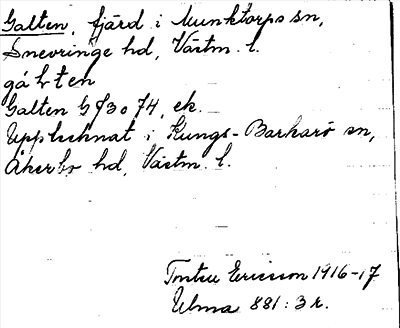 Galten, fjärd i Munktorps sn,
Snevringe hd, Västm. l.
Galten G 73 o 74, ek.
Upptecknat i Kungs-Barkarö sn,
Åkerbo hd, Västm. l.
Ericsson 1916-17
Ulma 881:3 r.